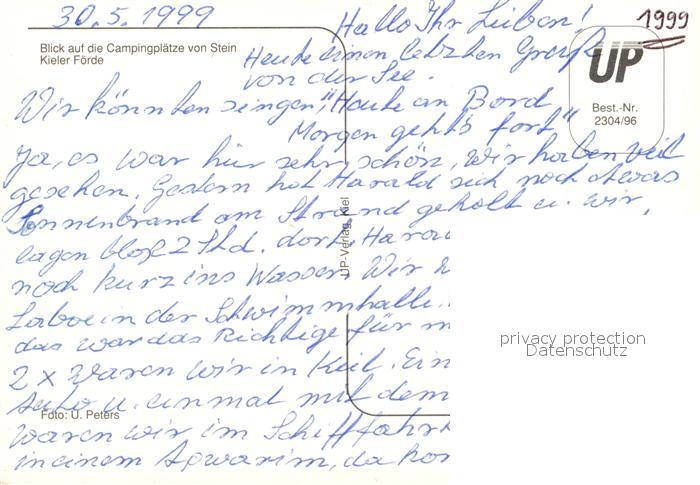 30.5.1999
1999
Hallo Ihr Lieben!
Blick auf die Campingplätze von Stein
Kieler Förde
Heute einen letzten Gruß
von der See.
UP
Best.-Nr.
2304/96
Wir könnten singen, "Heute an Bord,
Morgen geht's fort,"
Ja, es war hier sehr schön, wir haben viel
gesehen. Gestern hat Harald sich noch etwas
Sonnenbrand am Strand geholt u. wir
lagen bloß 2 Std. dort. Hara
noch kurz ins Wasser. Wir
Laboe in der Schwimmhalle.
das war das Richtige für m
2 x waren wir in Keil. Ein
Auto u. einmal mit dem
waren wir im Schifffahrt
in einem Aqwarim, da kon
UP-Verlag, Kiel
Foto: U. Peters
privacy protection
Datenschutz